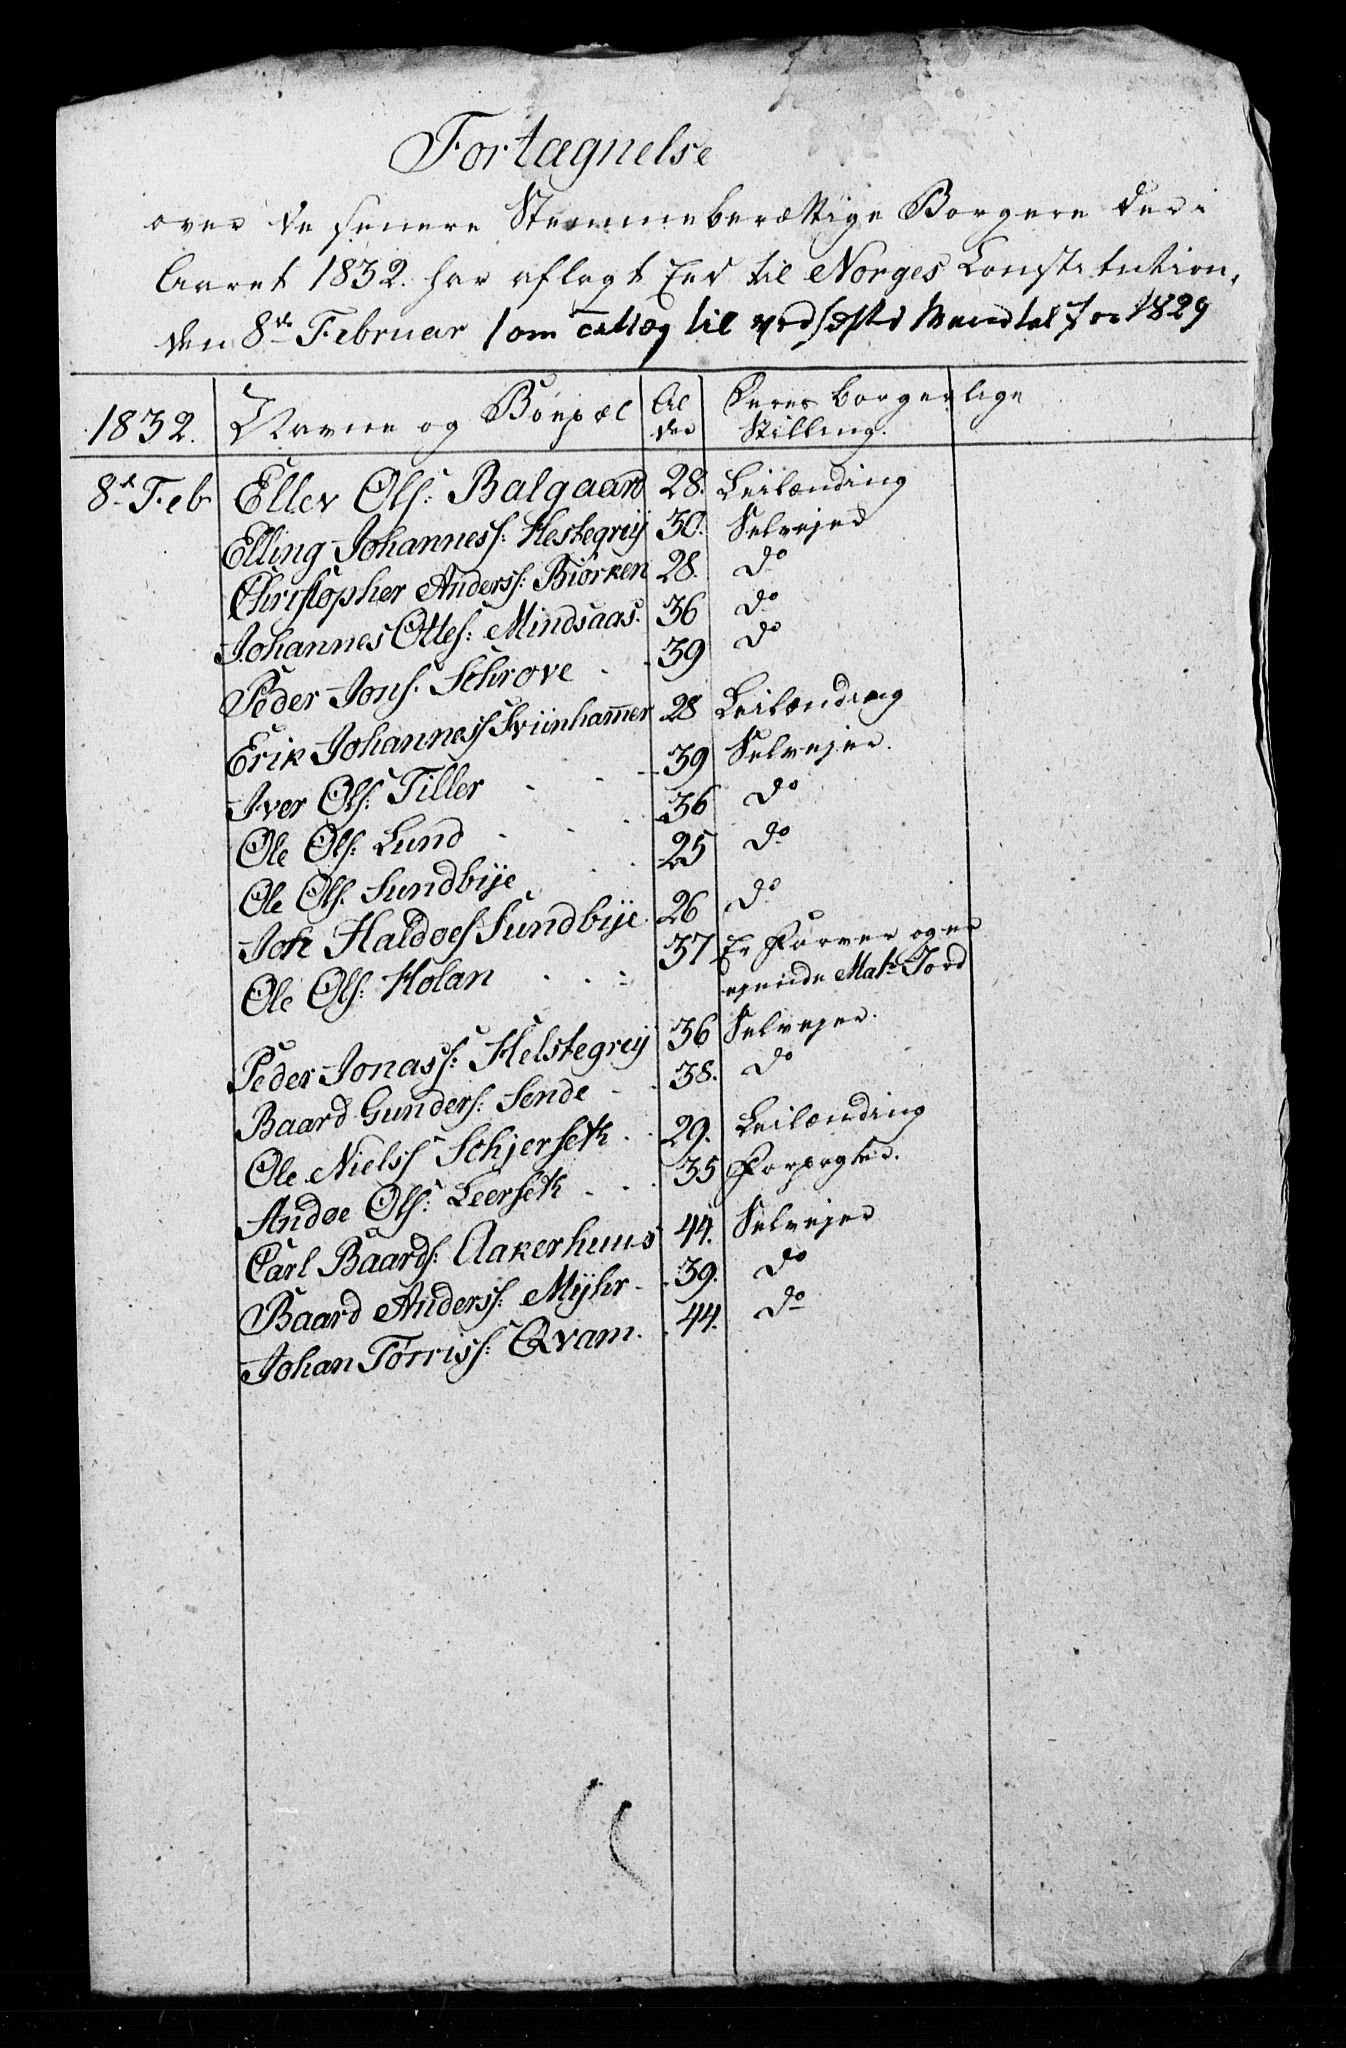 Fortægnelse
over de senere Stemmeberættige Borgere der i
Aaret 1832. har aflagt Eed til Norges Constitution,
den 8de Februar som Tillæg til vedhæftede Mandtal for 1829
1832. Navne og Boepæl Al der Deres borgerlige Stilling.
8d Feb Ellev Ols: Balgaard 28. Leilænding
Elling Johanness: Hestegreij 30. Selvejer
Christopher Anderss: Biörken 28. do
Johannes Ottes: Mindsaas. 36 do
Peder Jons. Schrove 39 do
Erik Johanness Sviinhammer 28 Leilænding
Iver Ols: Tiller 39 Selvejer.
Ole Ols: Lund 36 do
Ole Ols. Sundbije 25 do
Joh Haldoes Sundbije 26 do
Ole Ols: Holan 37 Er Farver og er
ejende Mat: Jord
Peder Jonass: Helstegreij 36 Selvejer.
Baard Gunders: Sende 38. do
Ole Nielss Schjerseth 29. Leilænding
Andoe Ols: Leerseth 35 Forpagter.
Carl Baards: Aakerhuus 44. Selvejer
Baard Anderss: Mijhr 39. do
Johan Torriss: Qvam. 44. do